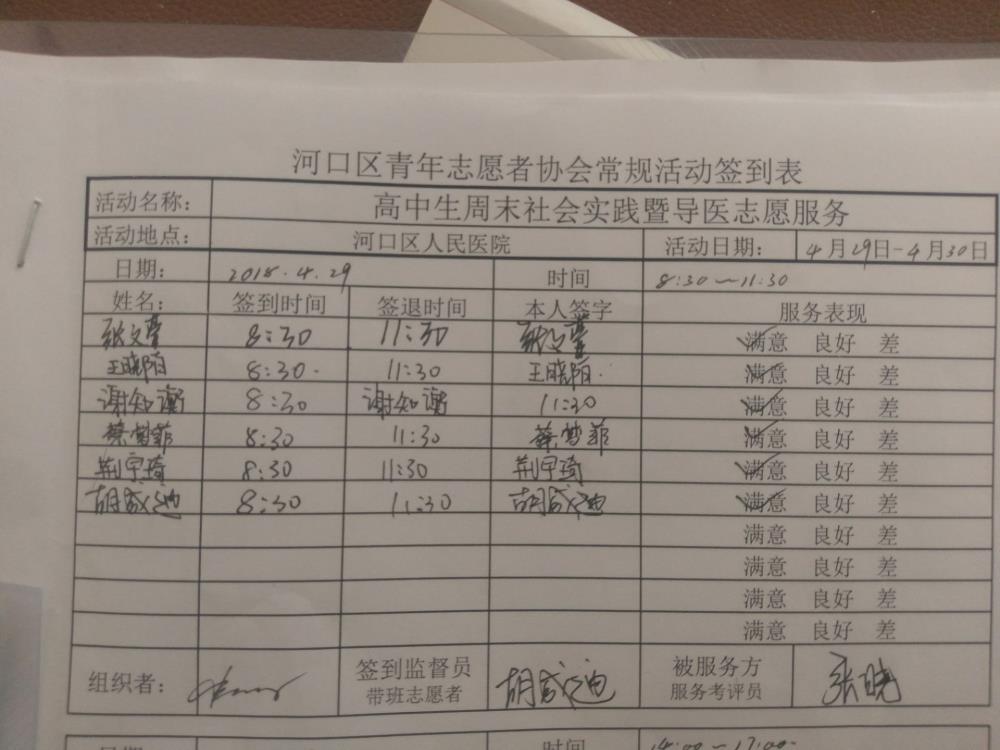 河口区青年志愿者协会常规活动签到表
活动名称： 高中生周末社会实践暨导医志愿服务
活动地点： 河口区人民医院 活动日期： 4月29日-4月30日
日期： 2018.4.29 时间 8:30～11:30
姓名： 签到时间 签退时间 本人签字 服务表现
张文萱 8:30 11:30 张文萱 满意 良好 差
王晓阳 8:30. 11:30 王晓阳. 满意 良好 差
谢知衡 8:30 谢知衡 11:30 满意 良好 差
蔡梦菲 8:30 11:30 蔡梦菲 满意 良好 差
荆宇琦 8:30 11:30 荆宇琦 满意 良好 差
胡 8:30 11:30 胡 满意 良好 差
满意 良好 差
满意 良好 差
满意 良好 差
满意 良好 差
组织者： 签到监督员 胡 被服务方 张晓
带班志愿者 服务考评员
时间 14:00～17:00.